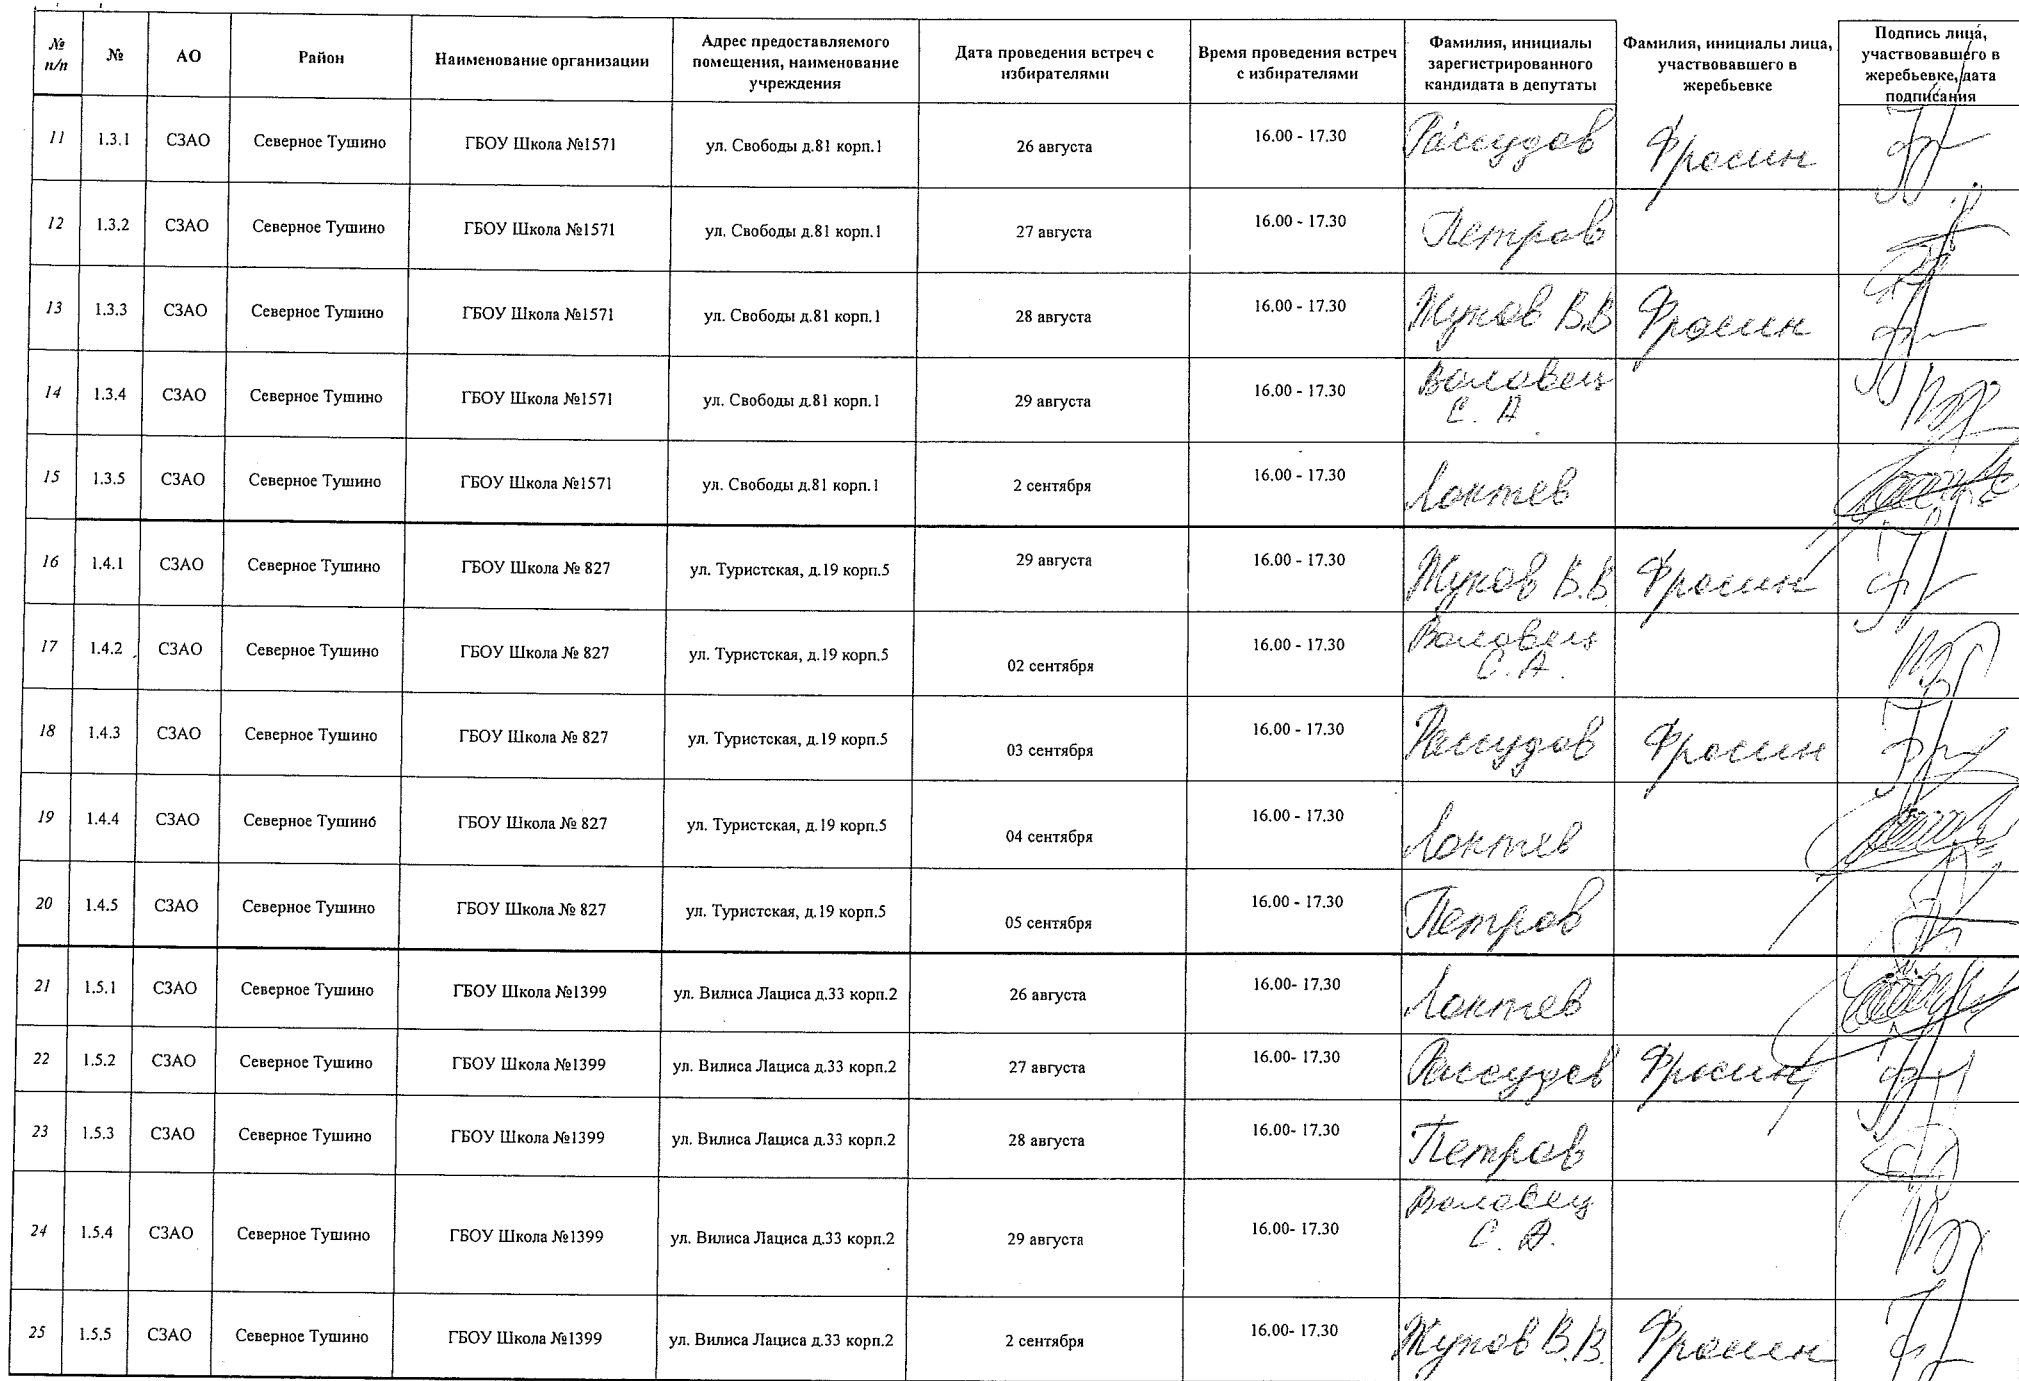 № п/п № АО Район Наименование организации Адрес предоставляемого помещения, наименование учреждения Дата проведения встреч с избирателями Время проведения встреч с избирателями Фамилия, инициалы зарегистрированного кандидата в депутаты Фамилия, инициалы лица, участвовавшего в жеребьевке Подпись лица, участвовавшего в жеребьевке, дата подписания
11 1.3.1 СЗАО Северное Тушино ГБОУ Школа №1571 ул. Свободы д.81 корп.1 26 августа 16.00 - 17.30 Рассудов Фросин
12 1.3.2 СЗАО Северное Тушино ГБОУ Школа №1571 ул. Свободы д.81 корп.1 27 августа 16.00 - 17.30 Петров
13 1.3.3 СЗАО Северное Тушино ГБОУ Школа №1571 ул. Свободы д.81 корп.1 28 августа 16.00 - 17.30 Жуков В.В Фросин
14 1.3.4 СЗАО Северное Тушино ГБОУ Школа №1571 ул. Свободы д.81 корп.1 29 августа 16.00 - 17.30 Воловец С. А
15 1.3.5 СЗАО Северное Тушино ГБОУ Школа №1571 ул. Свободы д.81 корп.1 2 сентября 16.00 - 17.30 Локтев
16 1.4.1 СЗАО Северное Тушино ГБОУ Школа № 827 ул. Туристская, д.19 корп.5 29 августа 16.00 - 17.30 Жуков В.В. Фросин
17 1.4.2 СЗАО Северное Тушино ГБОУ Школа № 827 ул. Туристская, д.19 корп.5 02 сентября 16.00 - 17.30 Воловец С. А.
18 1.4.3 СЗАО Северное Тушино ГБОУ Школа № 827 ул. Туристская, д.19 корп.5 03 сентября 16.00 - 17.30 Рассудов Фросин
19 1.4.4 СЗАО Северное Тушино ГБОУ Школа № 827 ул. Туристская, д.19 корп.5 04 сентября 16.00 - 17.30 Локтев
20 1.4.5 СЗАО Северное Тушино ГБОУ Школа № 827 ул. Туристская, д.19 корп.5 05 сентября 16.00 - 17.30 Петров
21 1.5.1 СЗАО Северное Тушино ГБОУ Школа №1399 ул. Вилиса Лациса д.33 корп.2 26 августа 16.00- 17.30 Локтев
22 1.5.2 СЗАО Северное Тушино ГБОУ Школа №1399 ул. Вилиса Лациса д.33 корп.2 27 августа 16.00- 17.30 Рассудов Фросин
23 1.5.3 СЗАО Северное Тушино ГБОУ Школа №1399 ул. Вилиса Лациса д.33 корп.2 28 августа 16.00- 17.30 Петров
24 1.5.4 СЗАО Северное Тушино ГБОУ Школа №1399 ул. Вилиса Лациса д.33 корп.2 29 августа 16.00- 17.30 Воловец С. А.
25 1.5.5 СЗАО Северное Тушино ГБОУ Школа №1399 ул. Вилиса Лациса д.33 корп.2 2 сентября 16.00- 17.30 Жуков В.В. Фросин